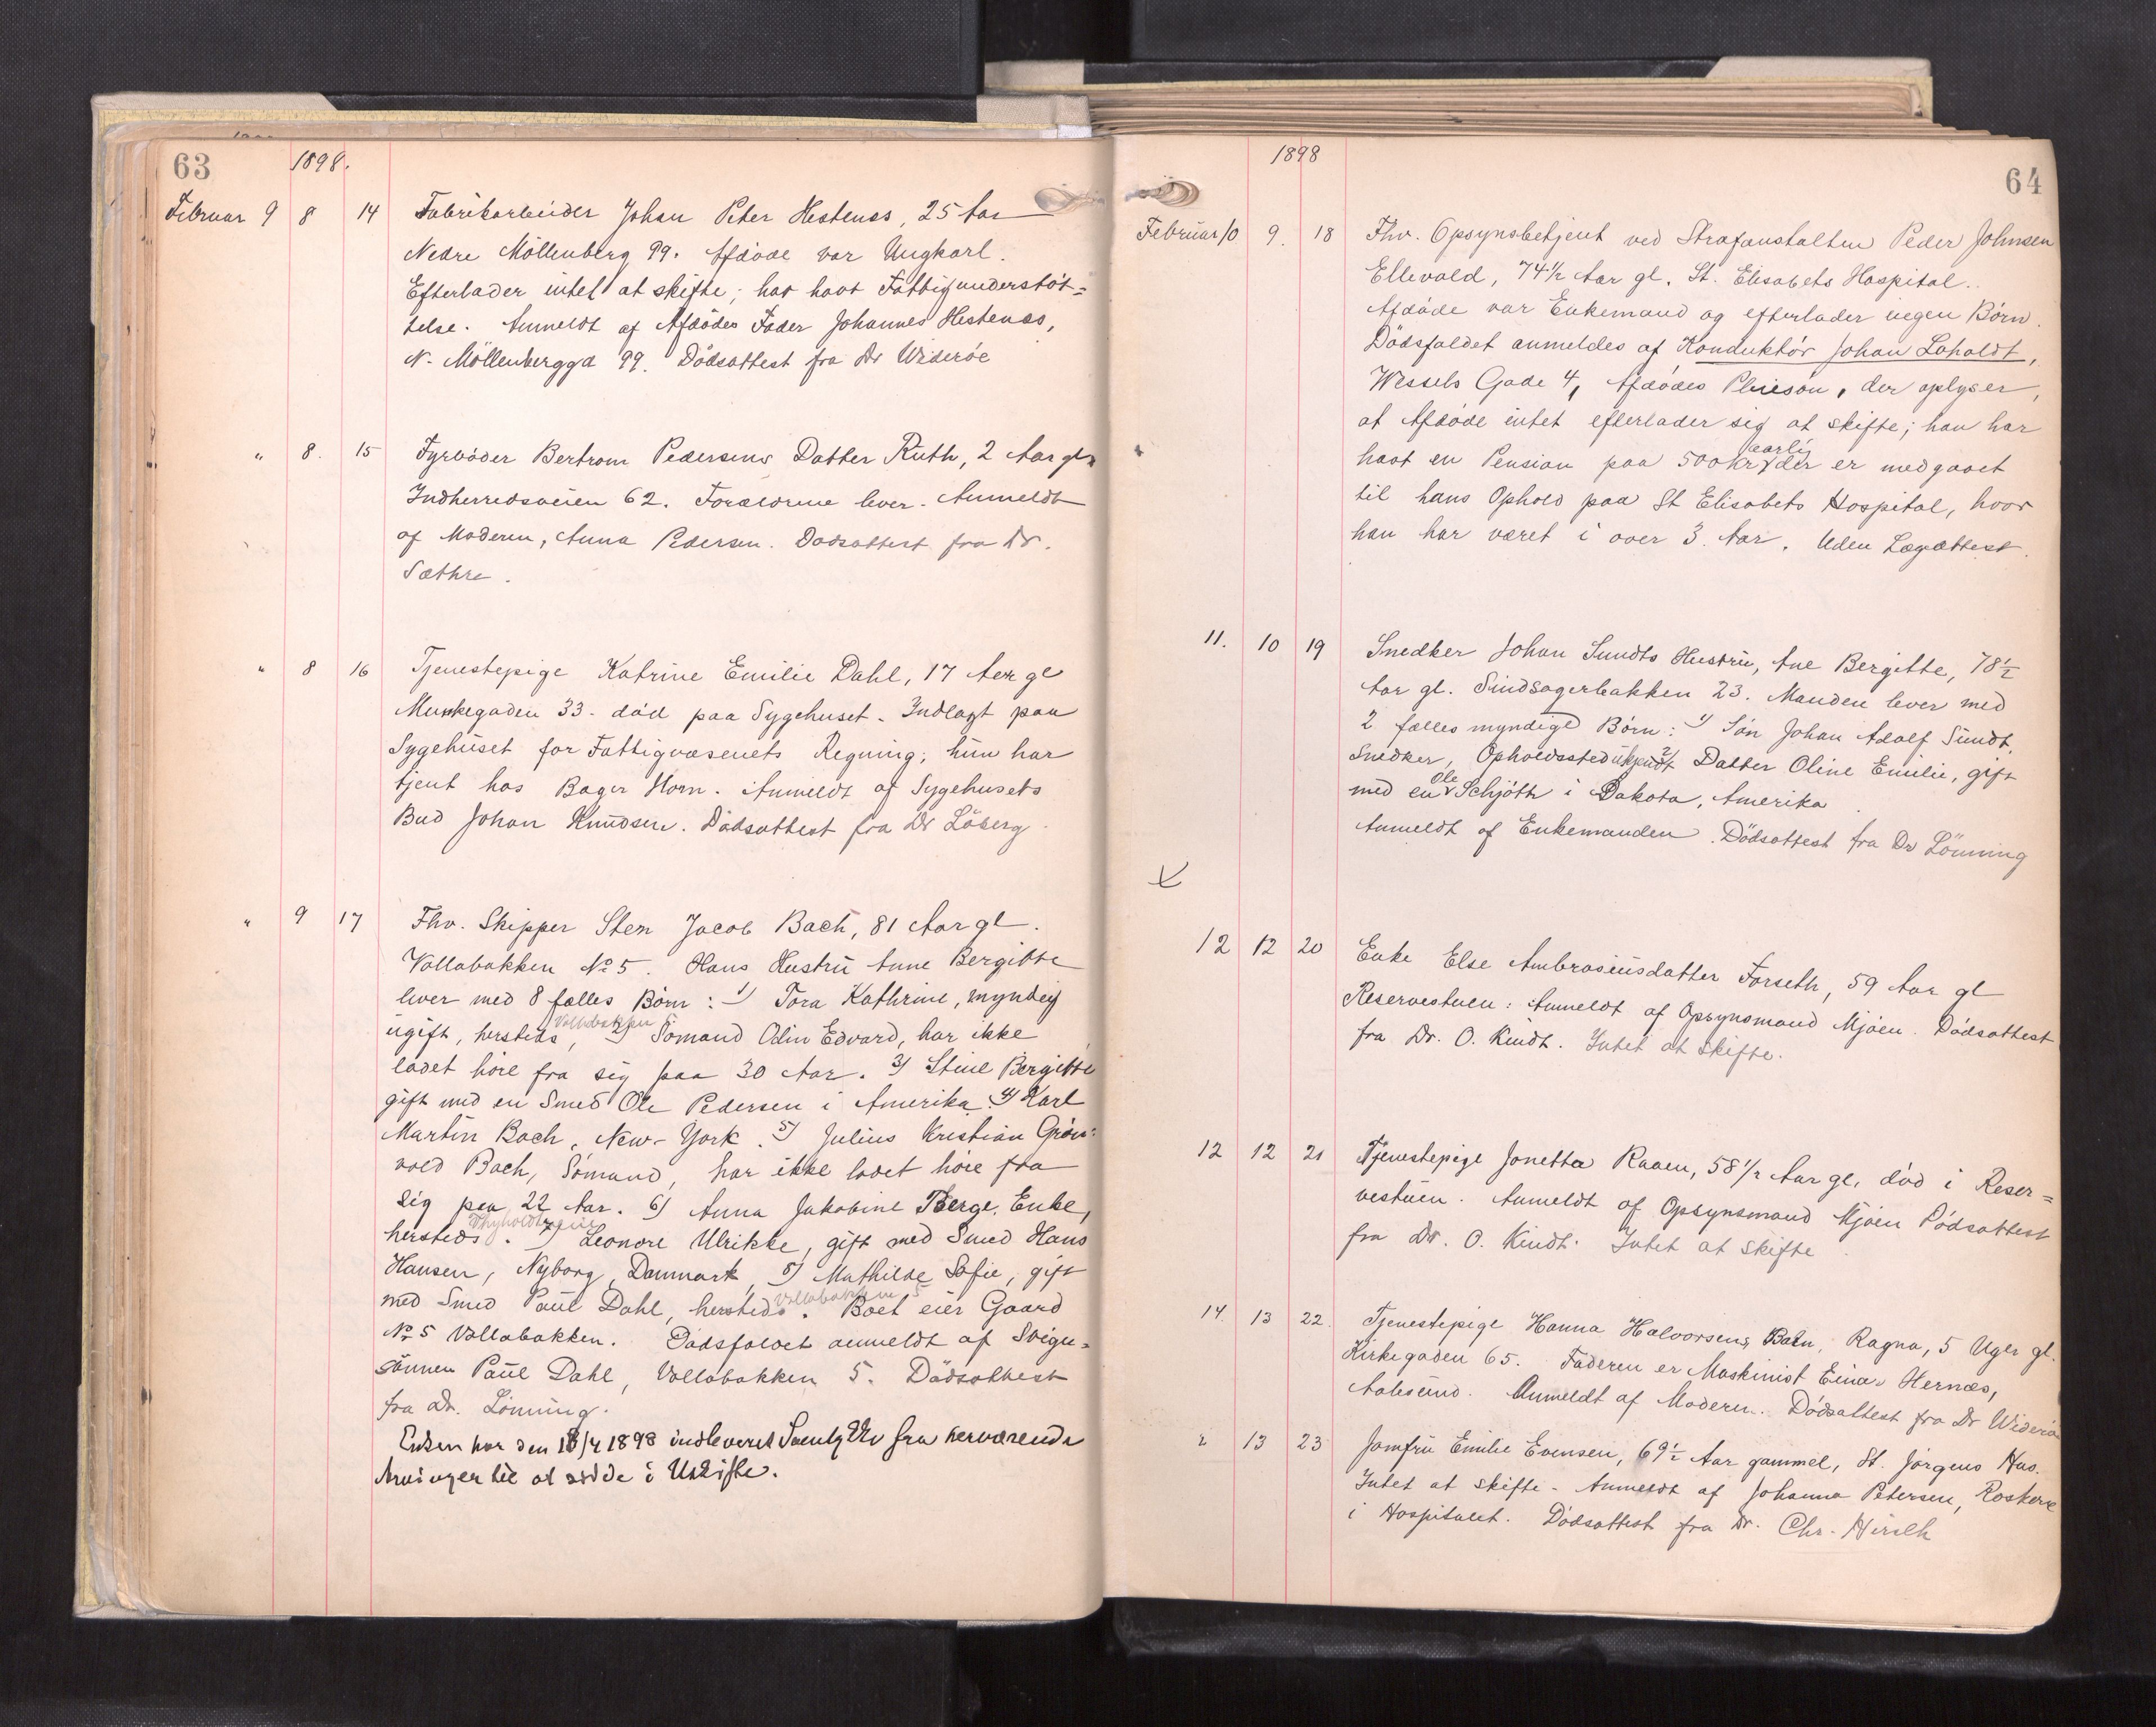 63 1898.
Februar 9 8 14 Fabrikarbeider Johan Peter Hestenæs, 25 Aar
Nedre Möllenberg 99. Afdöde var Ungkarl.
Efterlader intet at skifte; har havt Fattigunderstöt=
telse. Anmeldt af Afdödes Fader Johannes Hestenæs,
N. Möllenberggd 99. Dödsattest fra Dr Wideröe
" 8. 15 Fyrböder Bertram Pedersens Datter Ruth, 2 Aar gl.
Indherredsveien 62. Forældrene lever. Anmeldt
af Moderen, Anna Pedersen. Dödsattest fra Dr.
Sæthre.
" 8 16 Tjenestepige Katrine Emilie Dahl, 17 Aar gl
Munkegaden 33. död paa Sygehuset. Indlagt paa
Sygehuset for Fattigvæsenets Regning; hun har
tjent hos Bager Horn. Anmeldt af Sygehusets
Bud Johan Knudsen. Dödsattest fra Dr Löberg.
" 9 17 Fhv. Skipper Sten Jacob Bach, 81 Aar gl.
Vollabakken No 5. Hans Hustru Anne Bergitte
lever med 8 fælles Börn: 1) Tora Kathrine, myndig
Vollabakken 5
ugift, hersteds, 2) Sömand Odin Edvard, har ikke
ladet höre fra sig paa 30 Aar. 3) Stine Bergitte
gift med en Smed Ole Pedersen i Amerika. 4) Karl
Martin Bach, New-York. 5) Julius Kristian Grön=
vold Bach, Sömand, har ikke ladet höre fra
sig paa 22 Aar. 6) Anna Jakobine Berge, Enke,
hersteds. 7) Leonore Ulrikke, gift med Smed Hans
Hansen, Nyborg, Danmark, 8) Mathilde Sofie, gift
Vollabakken 5
med Smed Paul Dahl, hersteds. Boet eier Gaard
No 5 Vollabakken. Dödsfaldet anmeldt af Sviger=
sönnen Paul Dahl, Vollabakken 5. Dödsattest
fra Dr. Lönning.
Enken har den 18/4 1898 indleveret Samtykke fra herværende
Arvinger til at sidde i Uskifte.
1898 64
Februar 10 9. 18 Fhv. Opsynsbetjent ved Strafanstalten Peder Johnsen
Ellevold, 74½ Aar gl. St. Elisabets Hospital.
Afdöde var Enkemand og efterlader ingen Börn.
Dödsfaldet anmeldes af Konduktör Johan Loholdt,
Wessels Gade 4, Afdödes Pleiesön, der oplyser,
at Afdöde intet efterlader sig at skifte; han har
aarlig
havt en Pension paa 500 Kr der er medgaaet
til hans Ophold paa St Elisabets Hospital, hvor
han har været i over 3 Aar. Uden Lægeattest.
11. 10 19 Snedker Johan Sundts Hustru, Ane Bergitte, 78½
Aar gl. Sindsagerbakken 23. Manden lever med
2 fælles myndige Börn: 1) Sön Johan Adolf Sundt,
Snedker, Opholdssted ukjendt 2) Datter Oline Emilie, gift
Ole
med en Schjöth i Dakota, Amerika.
Anmeldt af Enkemanden. Dödsattest fra Dr Lönning
12 12 20 Enke Else Ambrosiusdatter Forseth, 59 Aar gl
Reservestuen: Anmeldt af Opsynsmand Mjöen. Dödsattest
fra Dr. O. Kindt. Intet at skifte.
12 12 21 Tjenestepige Jonetta Raaen, 58½ Aar gl, död i Reser=
vestuen. Anmeldt af Opsynsmand Mjöen Dödsattest
fra Dr. O. Kindt. Intet at skifte
14. 13 22. Tjenestepige Hanna Halvorsens Barn, Ragna, 5 Uger gl.
Kirkegaden 65. Faderen er Maskinist Einar Hernæs,
Aalesund. Anmeldt af Moderen. Dödsattest fra Dr Wideröe
" 13 23 Jomfru Emilie Evensen, 69½ Aar gammel, St. Jörgens Hus.
Intet at skifte. Anmeldt af Johanna Petersen,
i Hospitalet. Dödsattest fra Dr. Chr. Hirsch